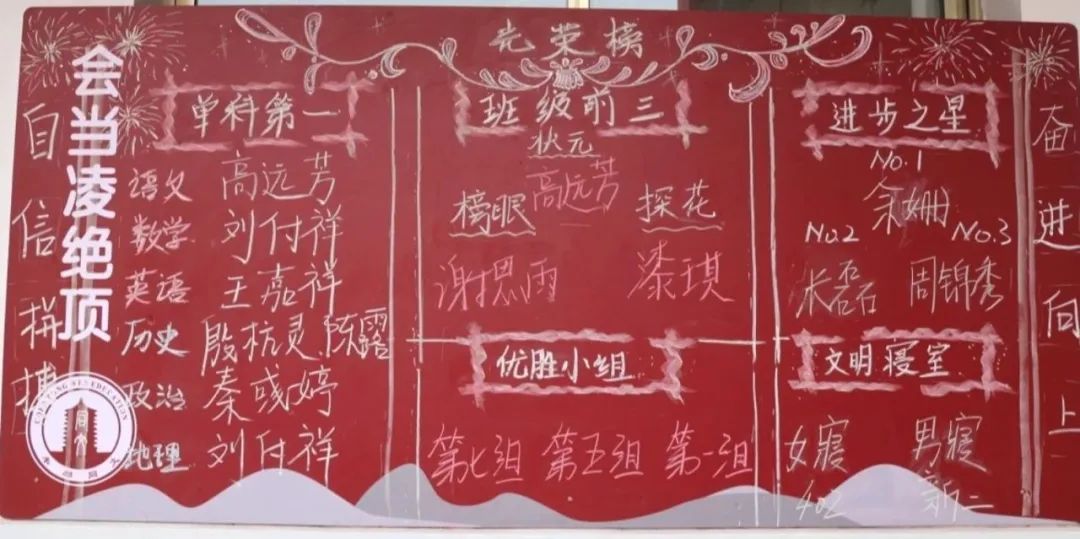 光荣榜
会当凌绝顶
自信拼搏
单科第一
语文 高远芳
数学 刘付祥
英语 王嘉祥
历史 殷杭灵 陈露
政治 秦彧婷
地理 刘付祥
班级前三
状元
高远芳
榜眼 探花
谢思雨 漆琪
优胜小组
第七组 第五组 第一组
进步之星
No.1
余姗
No.2 No.3
周锦秀
文明寝室
女寝 男寝
402 新二
奋进向上